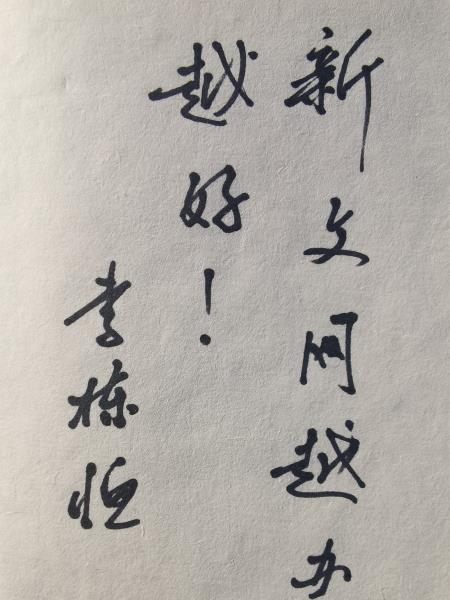 新文网越办
越好！
李栋恒